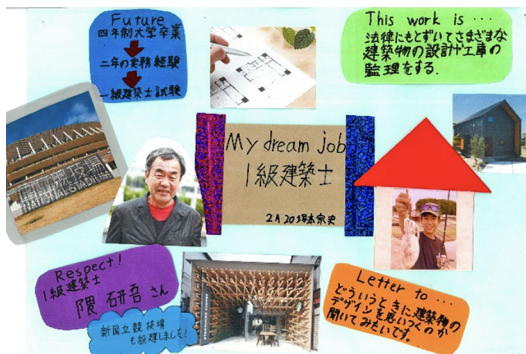 Future
四年制大学卒業
二年の実務経験
一級建築士試験
This work is…
法律にもとずいてさまざまな
建築物の設計や工事の
監理をする.
NATIONAL STADIUM
My dream job
1級建築士
Respect!
1級建築士
隈 研吾 さん
新国立競技場
も設建しました!
Letter to…
どういうときに建築物の
デザインを思いつくのか
聞いてみたいです。